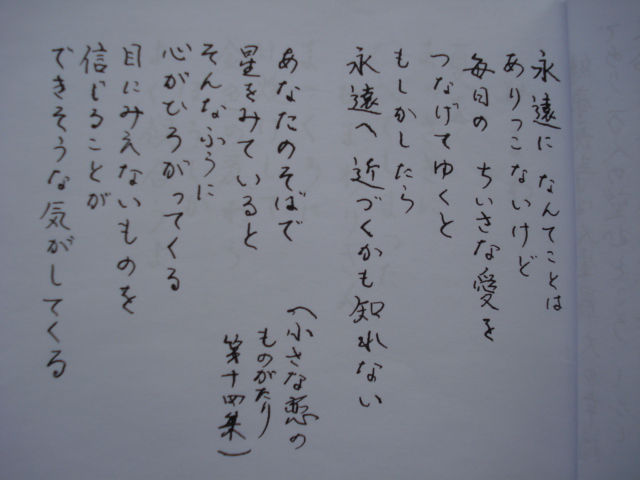 永遠に なんてことは
ありっこないけど
毎日の ちいさな愛を
つなげてゆくと
もしかしたら
永遠へ 近づくかも知れない
あなたのそばで
星をみていると
そんなふうに
心がひろがってくる
目にみえないものを
信じることが
できそうな気がしてくる
（小さな恋の
ものがたり
第十四集）